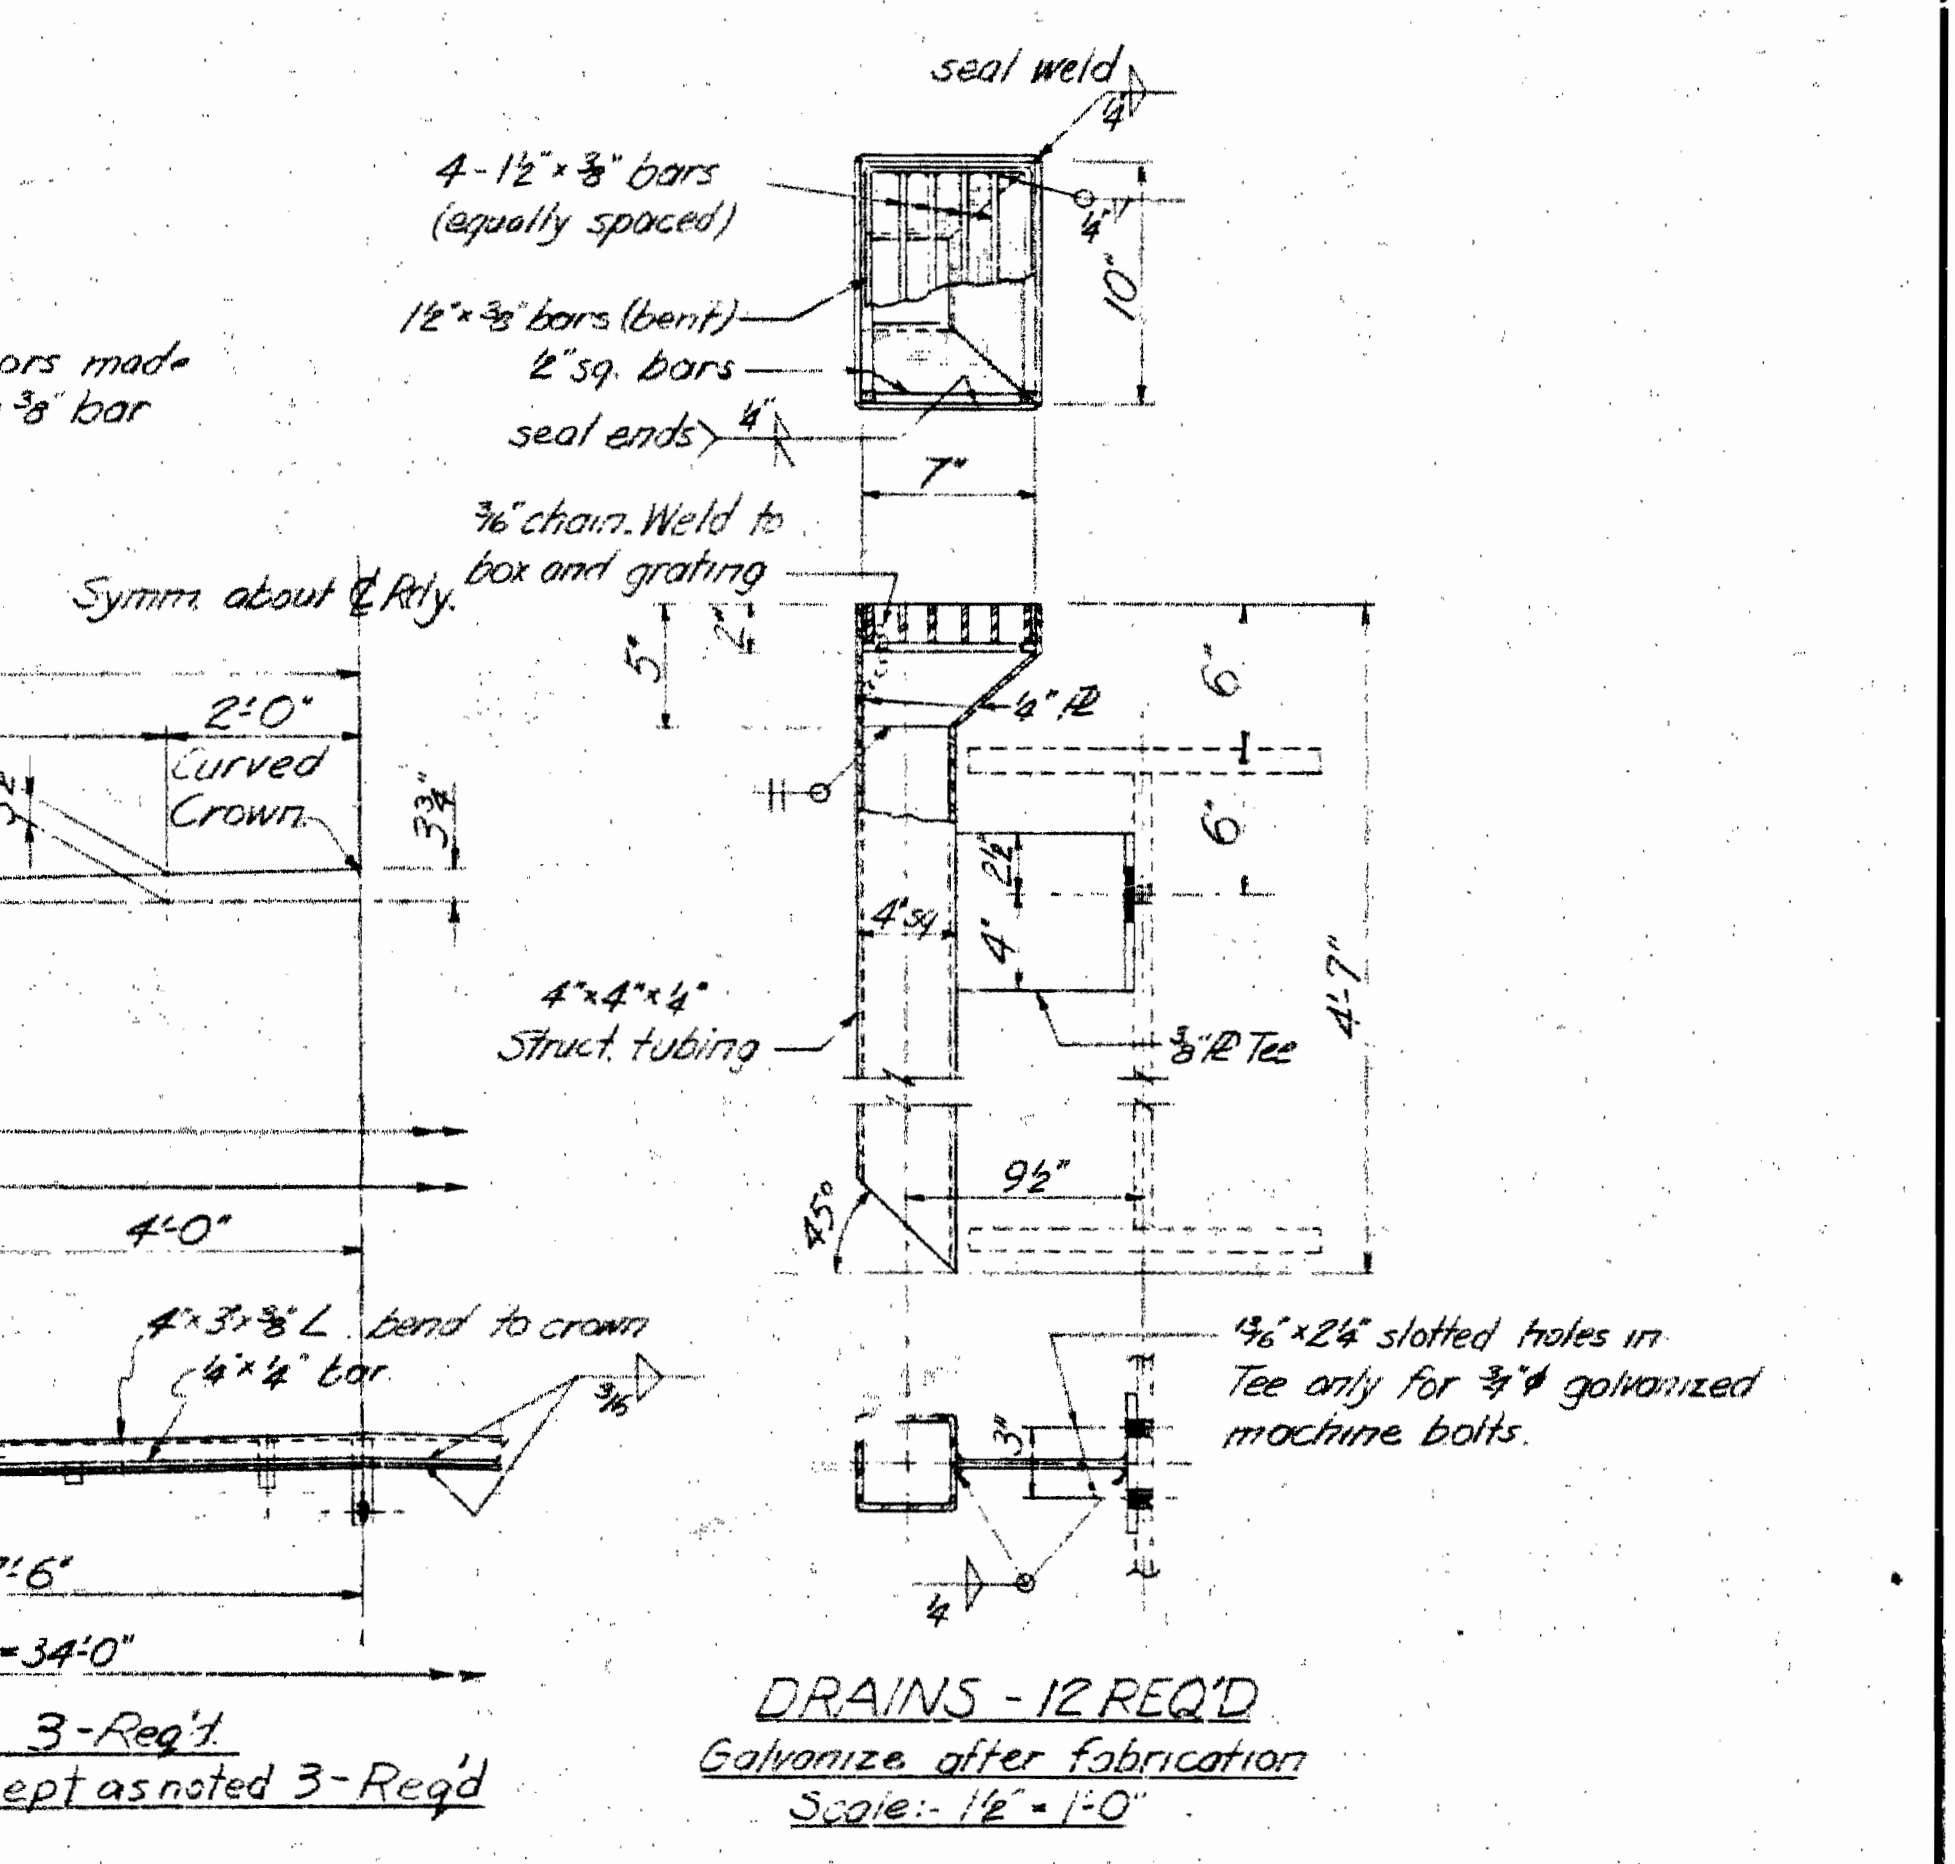 seal weld
1/4
4-1½"×⅜" bars
(equally spaced)
1/4"
10"
1½"×⅜" bars (bent)
½" sq. bars
seal ends
1/4"
7"
ors made
⅜" bar
3/16" chain. Weld to
box and grating
Symm. about ℄ Rdy.
5"
2"
6"
¼" ℙL
2'-0"
Curved
Crown
3¾"
6"
2½"
4" sq
4"
4'-7"
4"×4"×¼"
Struct. tubing
⅜" ℙL Tee
9½"
45°
4'-0"
4"×3"×⅜" L bend to crown
¼"×¼" bar
3/16
13/16"×2¼" slotted holes in
Tee only for ¾"φ galvanized
machine bolts.
3"
1/4
'-6"
=34'-0"
3-Req'd.
ept as noted 3-Req'd
DRAINS - 12 REQ'D
Galvanize after fabrication
Scale:- 1½" = 1'-0"